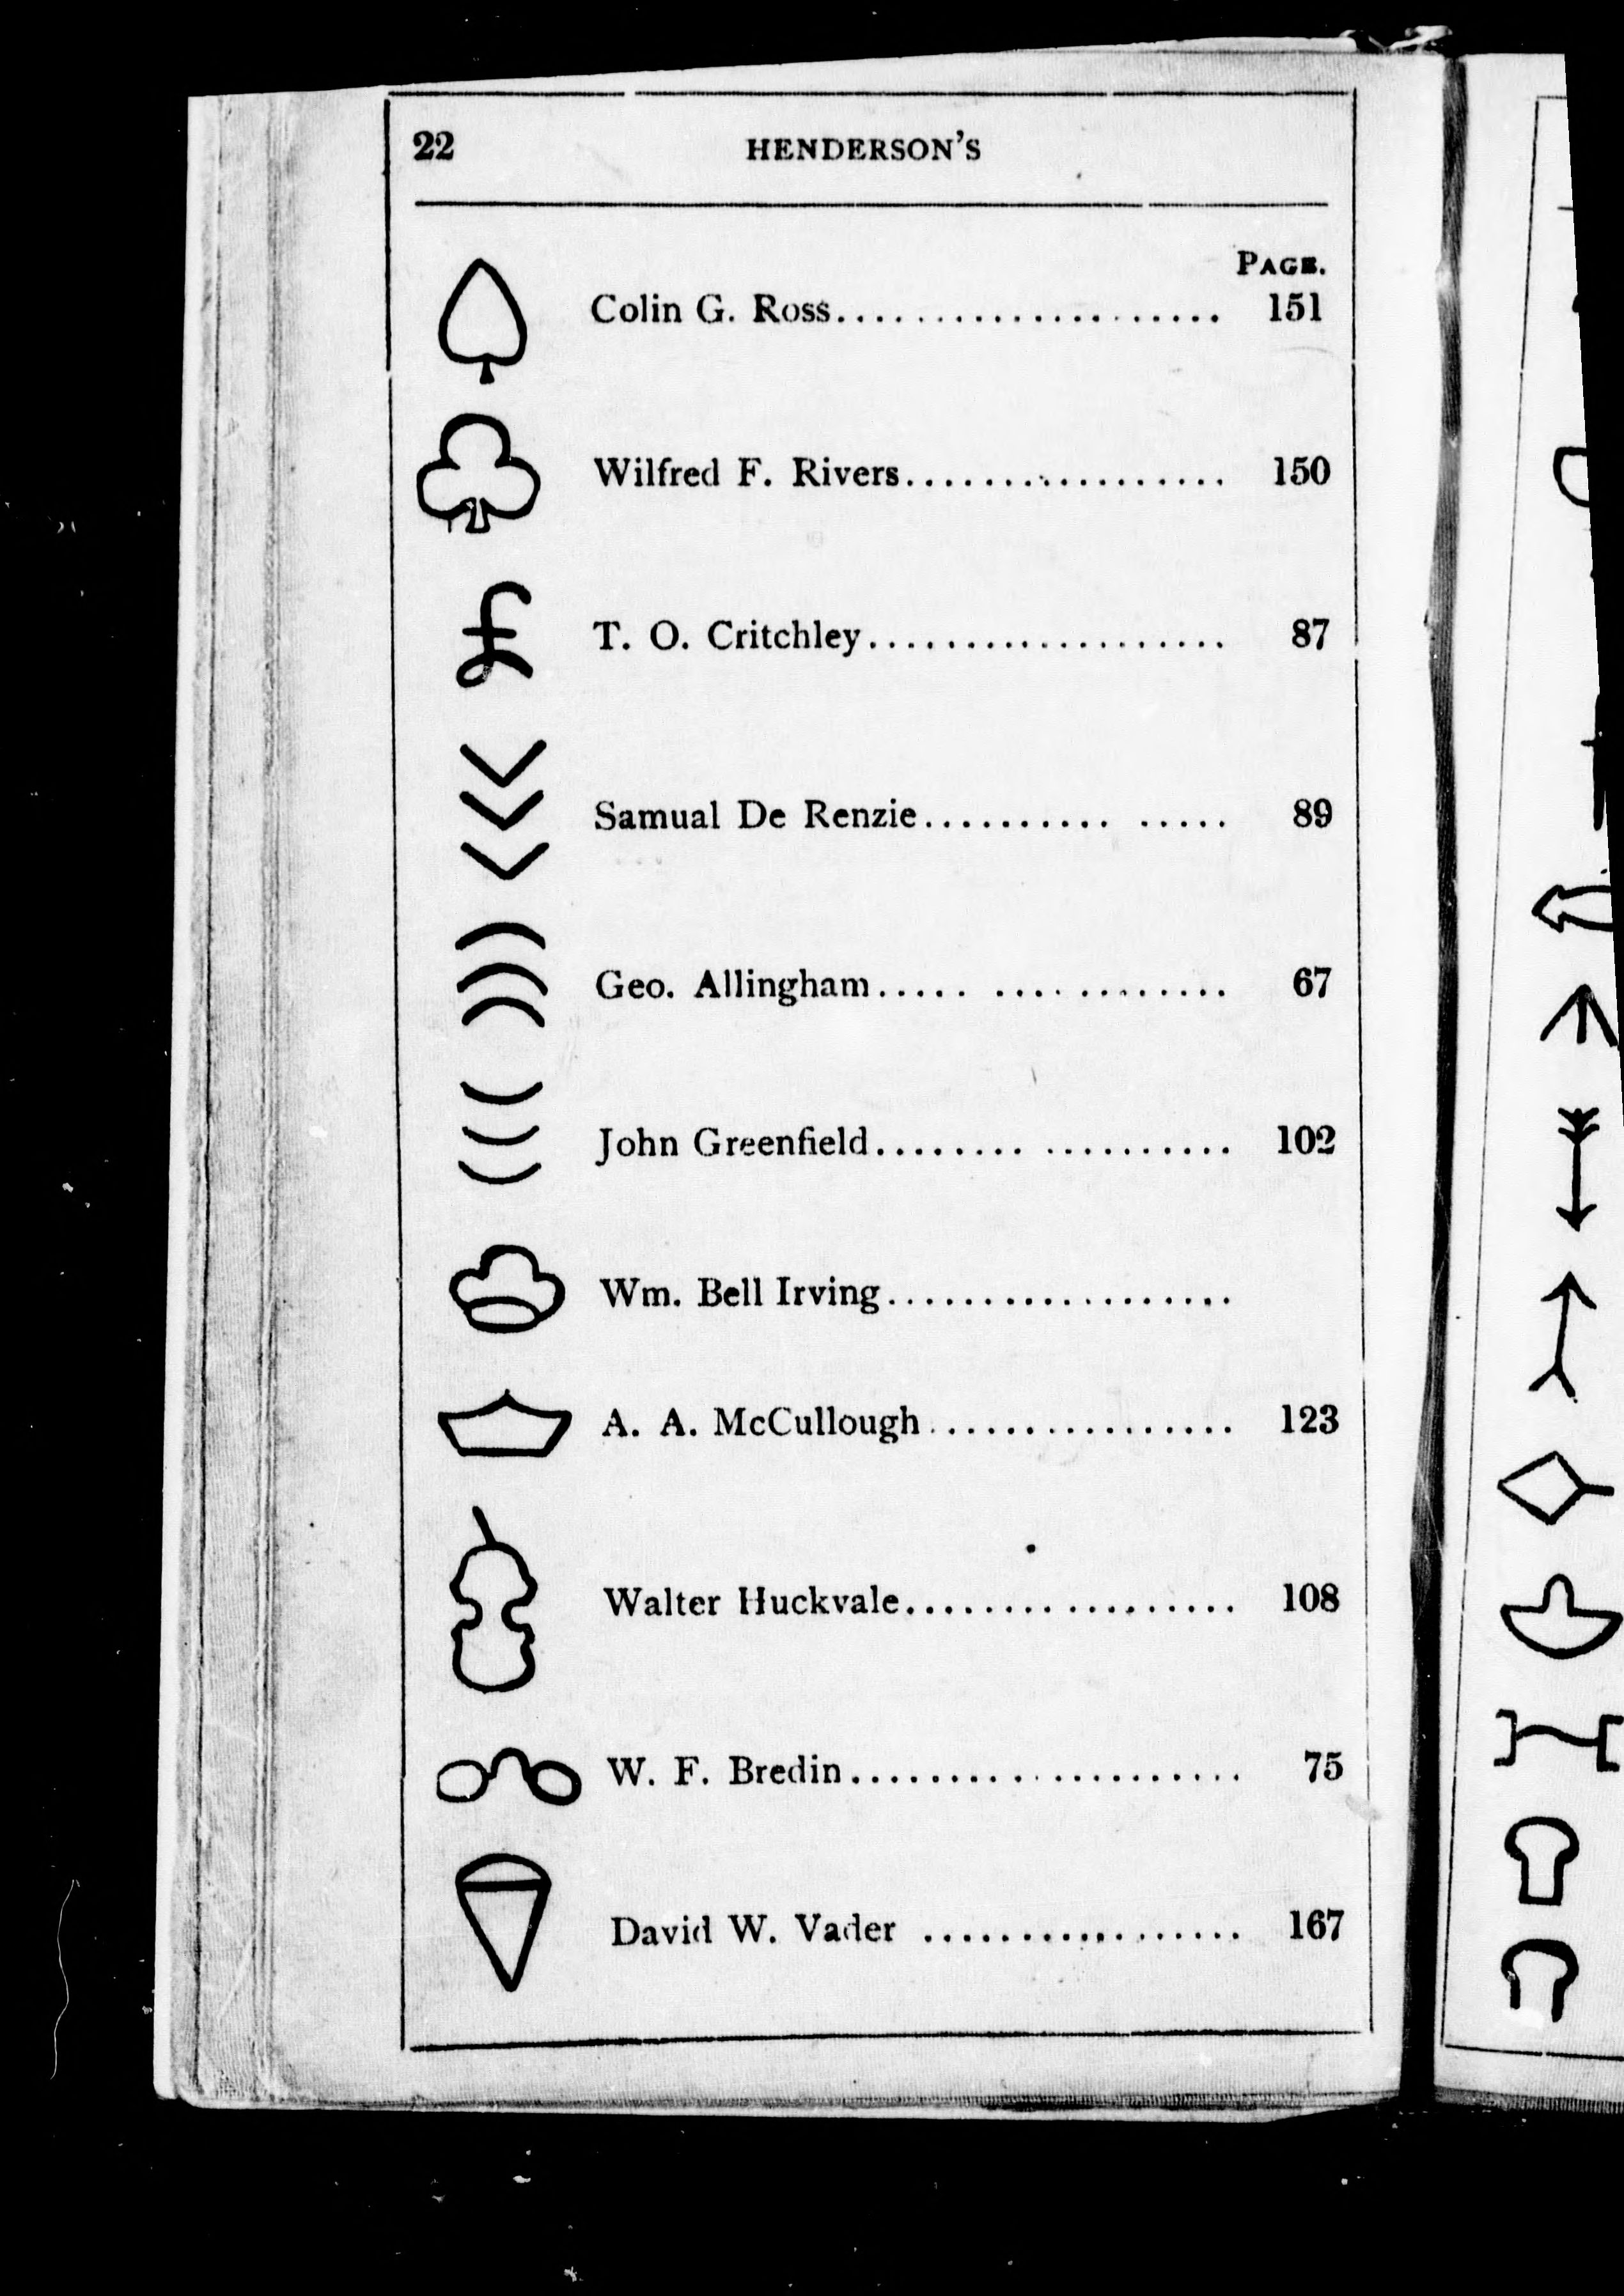 22 HENDERSON'S
PAGE.
Colin G. Ross..................... 151
Wilfred F. Rivers................. 150
£ T. O. Critchley................... 87
Samual De Renzie.......... ..... 89
Geo. Allingham..... ............ 67
John Greenfield........ .......... 102
Wm. Bell Irving..................
A. A. McCullough................ 123
Walter Huckvale................. 108
W. F. Bredin.................... 75
David W. Vader ................. 167